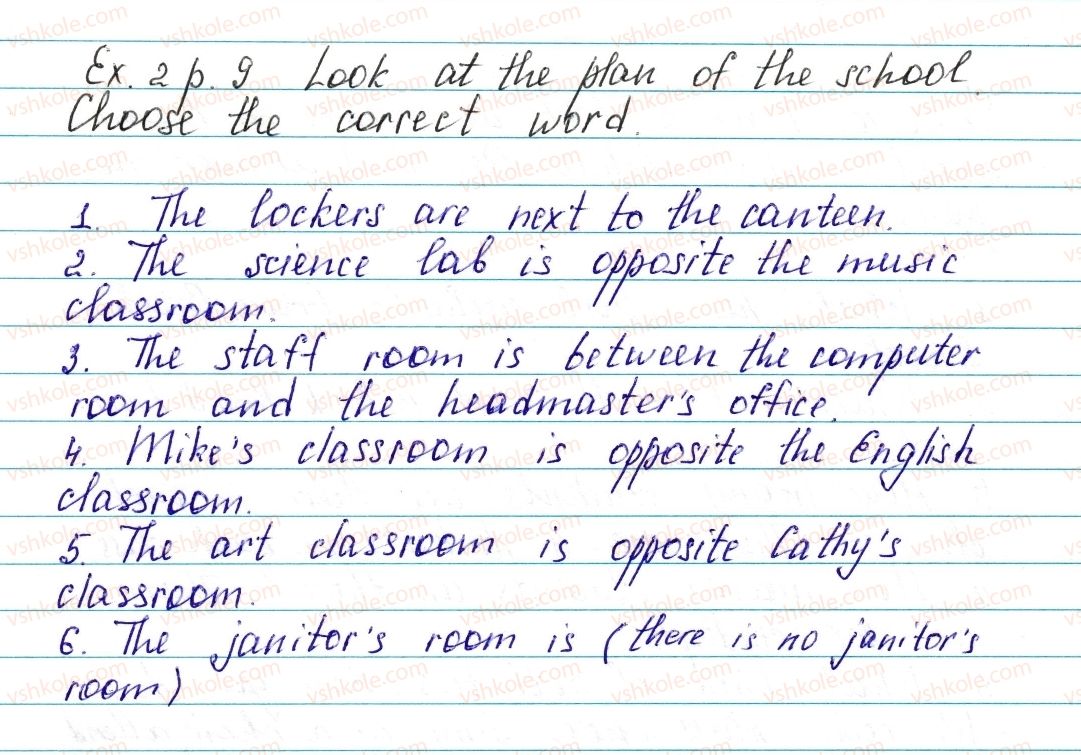 Ex. 2 p. 9 Look at the plan of the school.
Choose the correct word.
1. The lockers are next to the canteen.
2. The science lab is opposite the music
classroom.
3. The staff room is between the computer
room and the headmaster's office.
4. Mike's classroom is opposite the English
classroom.
5. The art classroom is opposite Cathy's
classroom.
6. The janitor's room is (there is no janitor's
room)
vshkole.com